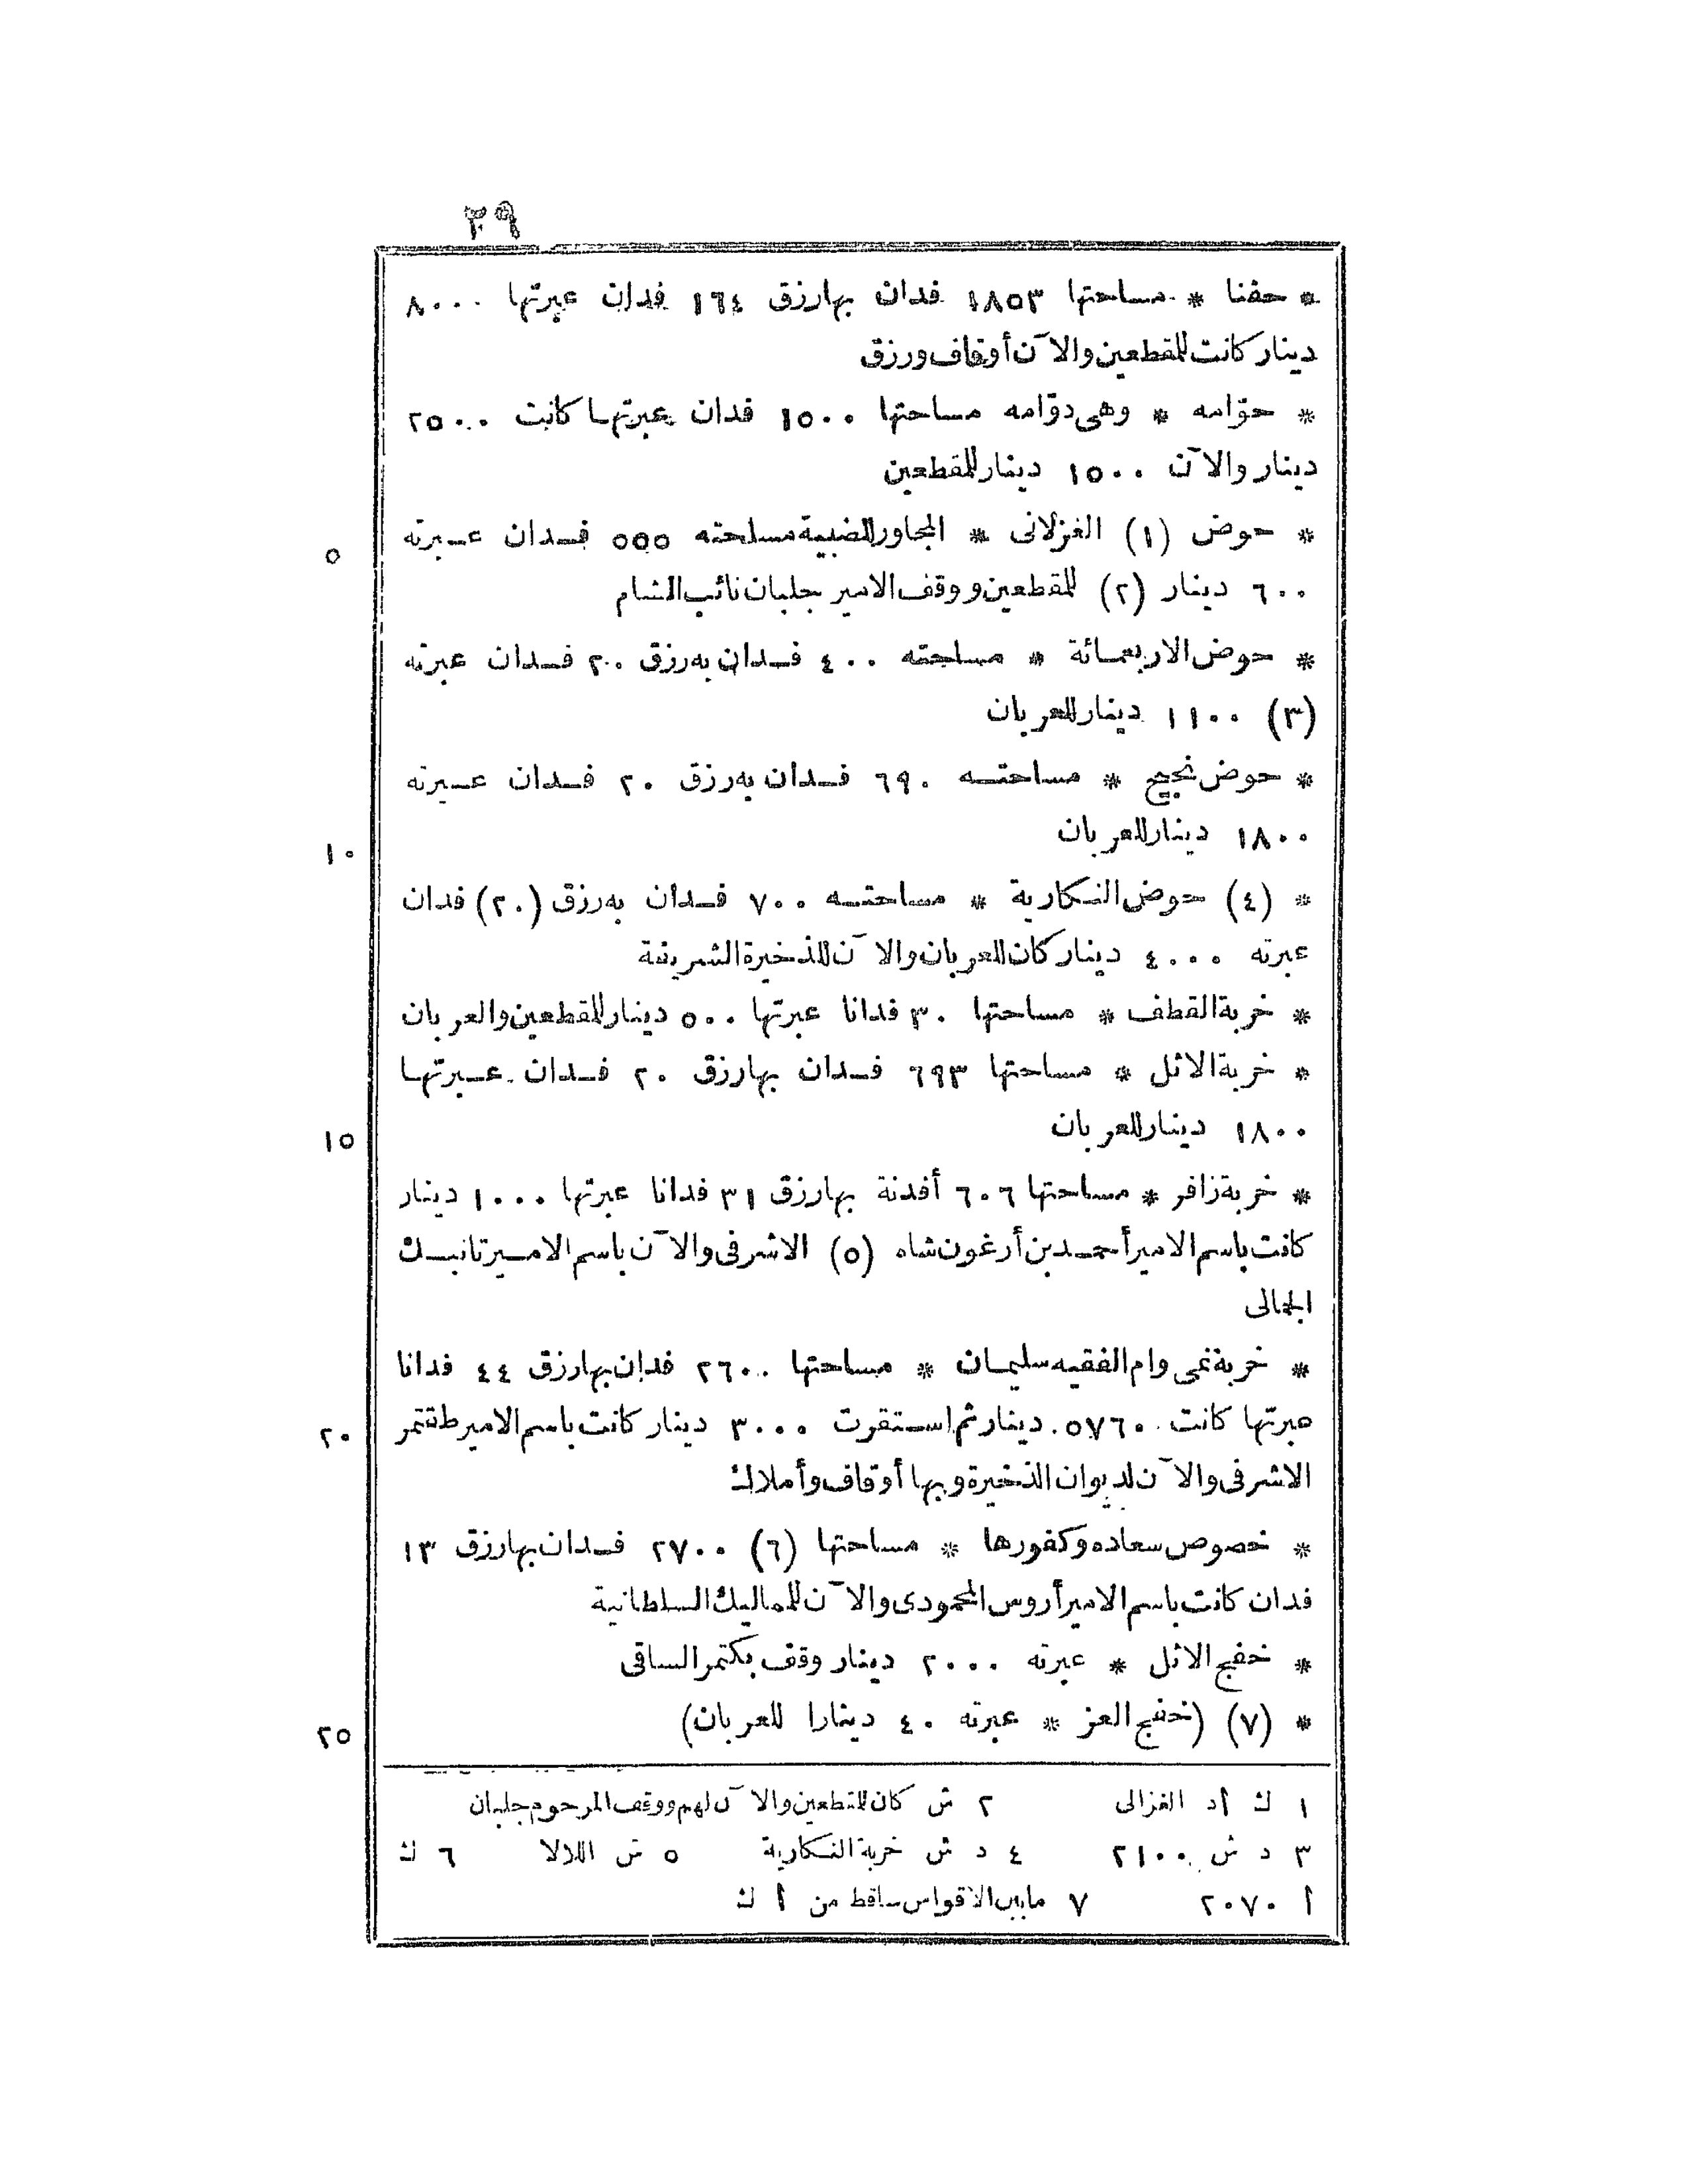 ٣٩
* حفنا * مساحتها ١٨٥٣ فدان بها رزق ١٦٤ فدان عبرتها ٨٠٠٠
دينار كانت للمقطعين والآن أوقاف ورزق
* حوّامه * وهى دوّامه مساحتها ١٥٠٠ فدان عبرتها كانت ٢٥٠٠
دينار والآن ١٥٠٠ دينار للمقطعين
* حوض (١) الغزلانى * المجاور للضبية مساحته ٥٥٥ فدان عبرته
٥
٦٠٠ دينار (٢) للمقطعين ووقف الامير جلبان نائب الشام
* حوض الاربعمائة * مساحته ٤٠٠ فدان به رزق ٢٠ فدان عبرته
(٣) ١١٠٠ دينار للعربان
* حوض نجيح * مساحته ٦٩٠ فدان به رزق ٢٠ فدان عبرته
١٨٠٠ دينار للعربان
١٠
* (٤) حوض النكارية * مساحته ٧٠٠ فدان به رزق (٢٠) فدان
عبرته ٤٠٠٠ دينار كان للعربان والآن للذخيرة الشريفة
* خربة القطف * مساحتها ٣٠ فدانا عبرتها ٥٠٠ دينار للمقطعين والعربان
* خربة الاثل * مساحتها ٦٩٣ فدان بها رزق ٢٠ فدان عبرتها
١٨٠٠ دينار للعربان
١٥
* خربة زافر * مساحتها ٦٠٦ أفدنة بها رزق ٣١ فدانا عبرتها ١٠٠٠ دينار
كانت باسم الامير أحمد بن أرغون شاه (٥) الاشرفى والآن باسم الامير تانبك
الجمالى
* خربة نمى وام الفقيه سليمان * مساحتها ٢٦٠٠ فدان بها رزق ٤٤ فدانا
عبرتها كانت ٥٧٦٠ دينار ثم استقرت ٣٠٠٠ دينار كانت باسم الامير طقتمر
٢٠
الاشرفى والآن لديوان الذخيرة وبها أوقاف وأملاك
* خصوص سعاده وكفورها * مساحتها (٦) ٢٧٠٠ فدان بها رزق ١٣
فدان كانت باسم الامير أروس المحمودى والآن للمماليك السلطانية
* خفج الاثل * عبرته ٢٠٠٠ دينار وقف بكتمر الساقى
* (٧) (خفج العز * عبرته ٤٠ دينارا للعربان)
٢٥
١ ك أ د الغزالى ٢ ش كان للمقطعين والآن لهم ووقف المرحوم جلبان
٣ د ش ٢١٠٠ ٤ د ش خربة النكارية ٥ ش اللالا ٦ ك
أ ٢٠٧٠ ٧ مابين الاقواس ساقط من أ ك